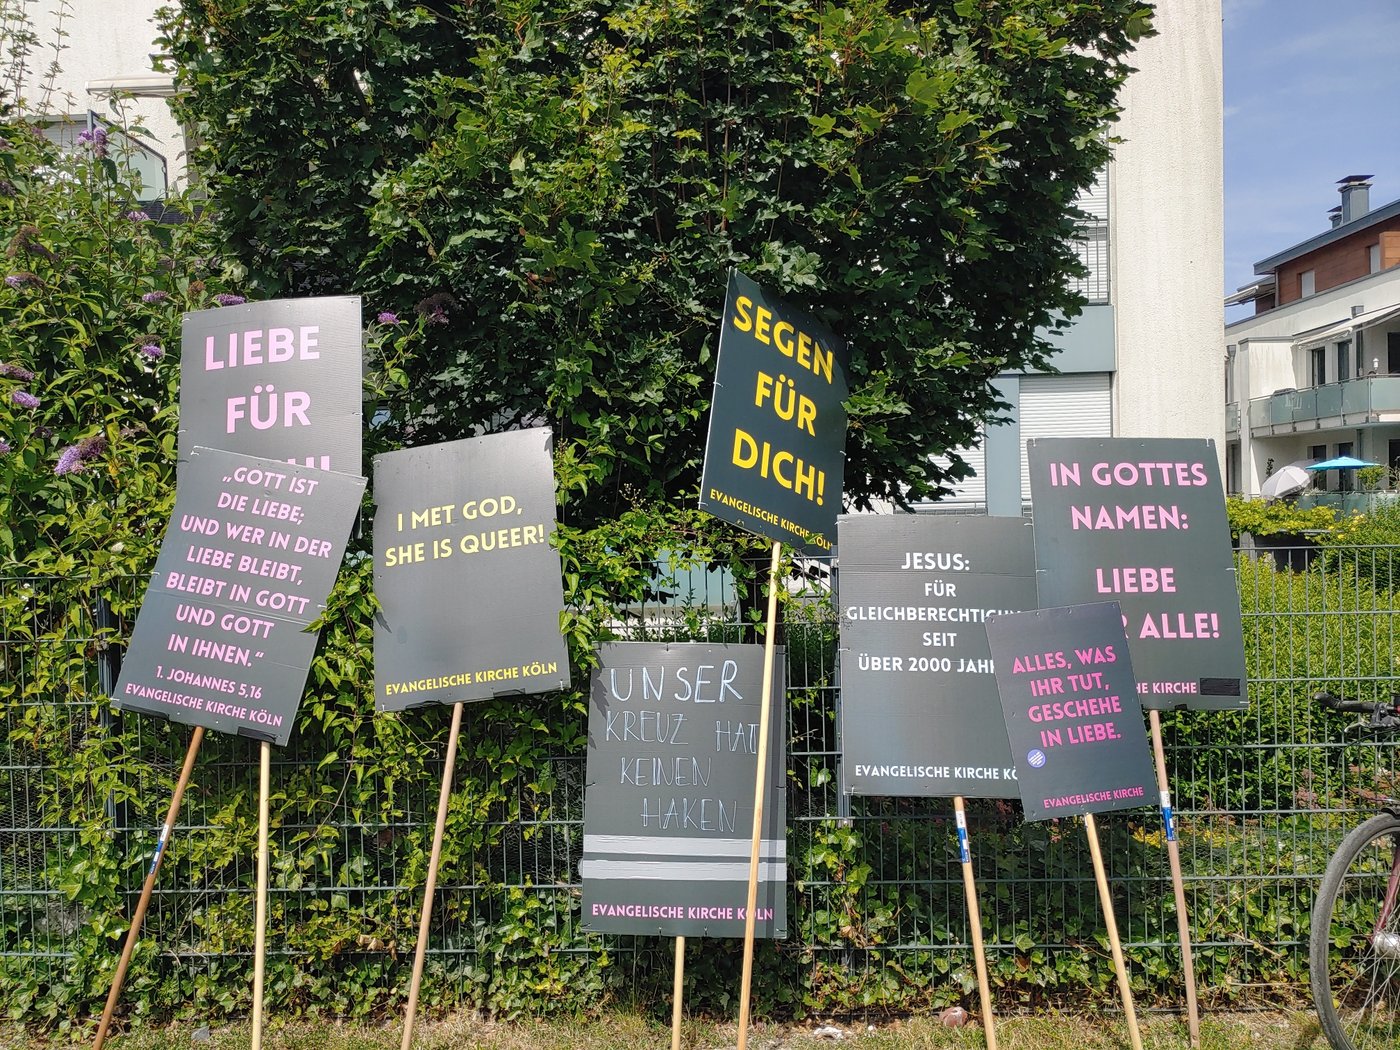 LIEBE
FÜR
„GOTT IST
DIE LIEBE;
UND WER IN DER
LIEBE BLEIBT,
BLEIBT IN GOTT
UND GOTT
IN IHNEN.“
1. JOHANNES 5,16
EVANGELISCHE KIRCHE KÖLN
I MET GOD,
SHE IS QUEER!
EVANGELISCHE KIRCHE KÖLN
UNSER
KREUZ HAT
KEINEN
HAKEN
EVANGELISCHE KIRCHE KÖLN
SEGEN
FÜR
DICH!
EVANGELISCHE KIRCHE KÖLN
JESUS:
FÜR
SEIT
ÜBER 2000
EVANGELISCHE KIRCHE
IN GOTTES
NAMEN:
LIEBE
ALLE!
KIRCHE
ALLES, WAS
IHR TUT,
GESCHEHE
IN LIEBE.
EVANGELISCHE KIRCHE